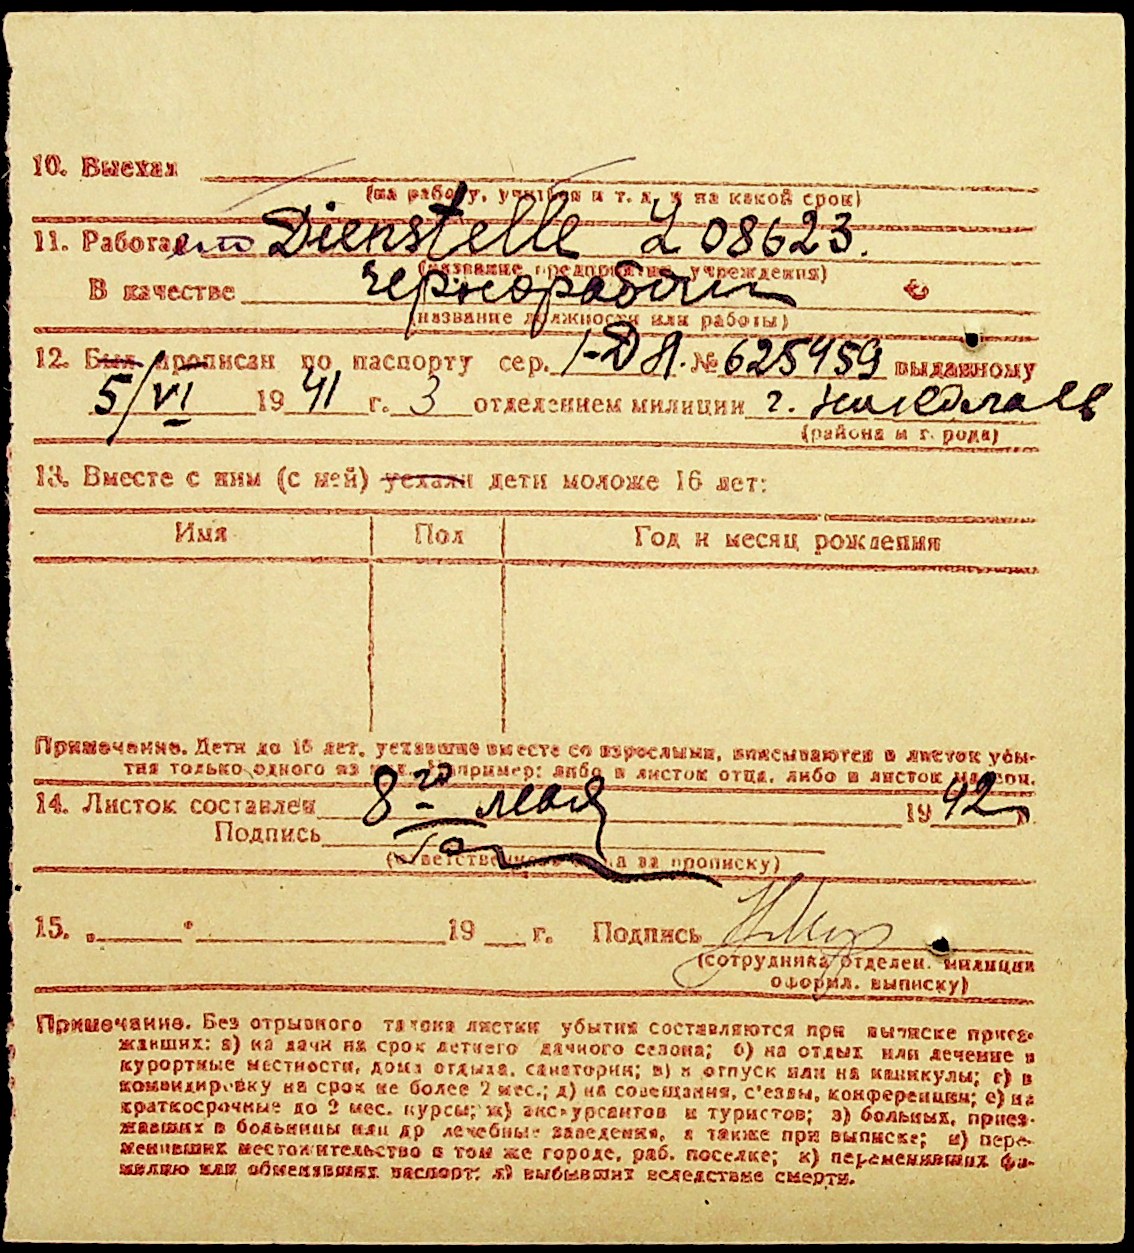 10. Выехал
(на работу, учиться и т. д. и на какой срок)
11. Работает Dienstelle L 08623.
(название предприятие, учреждения)
В качестве чернорабоч
(название должности или работы)
12. Был прописан по паспорту сер. I-ДА. № 625459 выданному
5/VI 1941 г. 3 отделением милиции г. Николаев
(района и города)
13. Вместе с ним (с ней) уехали дети моложе 16 лет:
Имя Пол Год и месяц рождения
Примечание. Дети до 16 лет, уехавшие вместе со взрослыми, вписываются в листок убы-
тия только одного из них. Например: либо в листок отца, либо в листок матери.
14. Листок составлен 8го мая 1942 г.
Подпись
(ответственного лица за прописку)
15. „ “ 19 г. Подпись
(сотрудника отделен. милиции
оформл. выписку)
Примечание. Без отрывного талона листки убытия составляются при выписке приез-
жавших: а) на дачи на срок летнего дачного сезона; б) на отдых или лечение в
курортные местности, дома отдыха, санатории; в) в отпуск или на каникулы; г) в
командировку на срок не более 2 мес.; д) на совещания, с'езды, конференции; е) на
краткосрочные до 2 мес. курсы; ж) экскурсантов и туристов; з) больных, приез-
жавших в больницы или др лечебные заведения, а также при выписке; и) пере-
менивших местожительство в том же городе, раб. поселке; к) переменивших фа-
милию или обменявших паспорт; л) выбывших вследствие смерти.